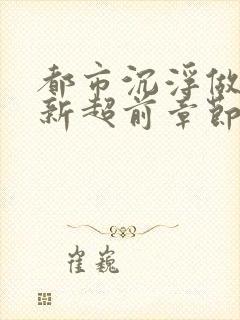 都市沉浮做
新超前章节
崔巍